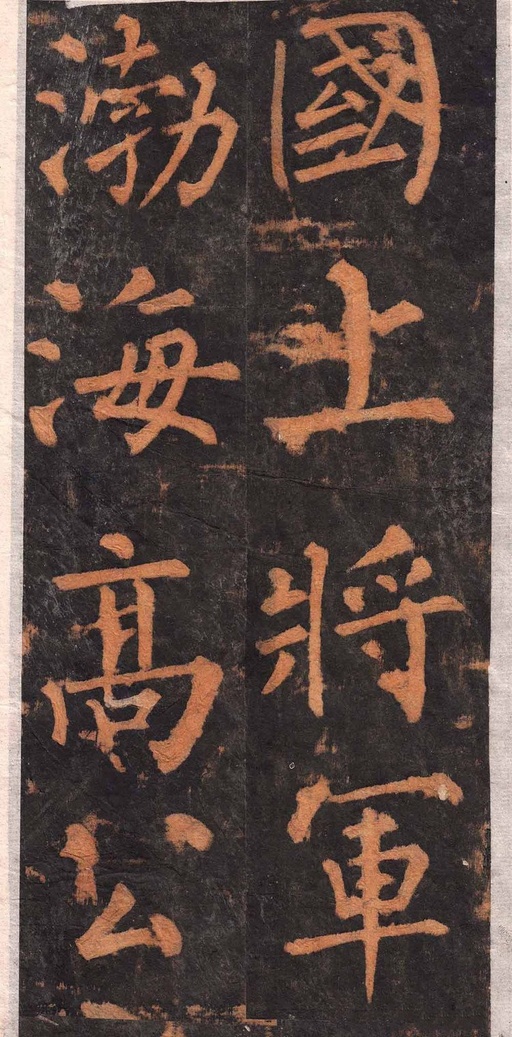 國上將軍
渤海高公